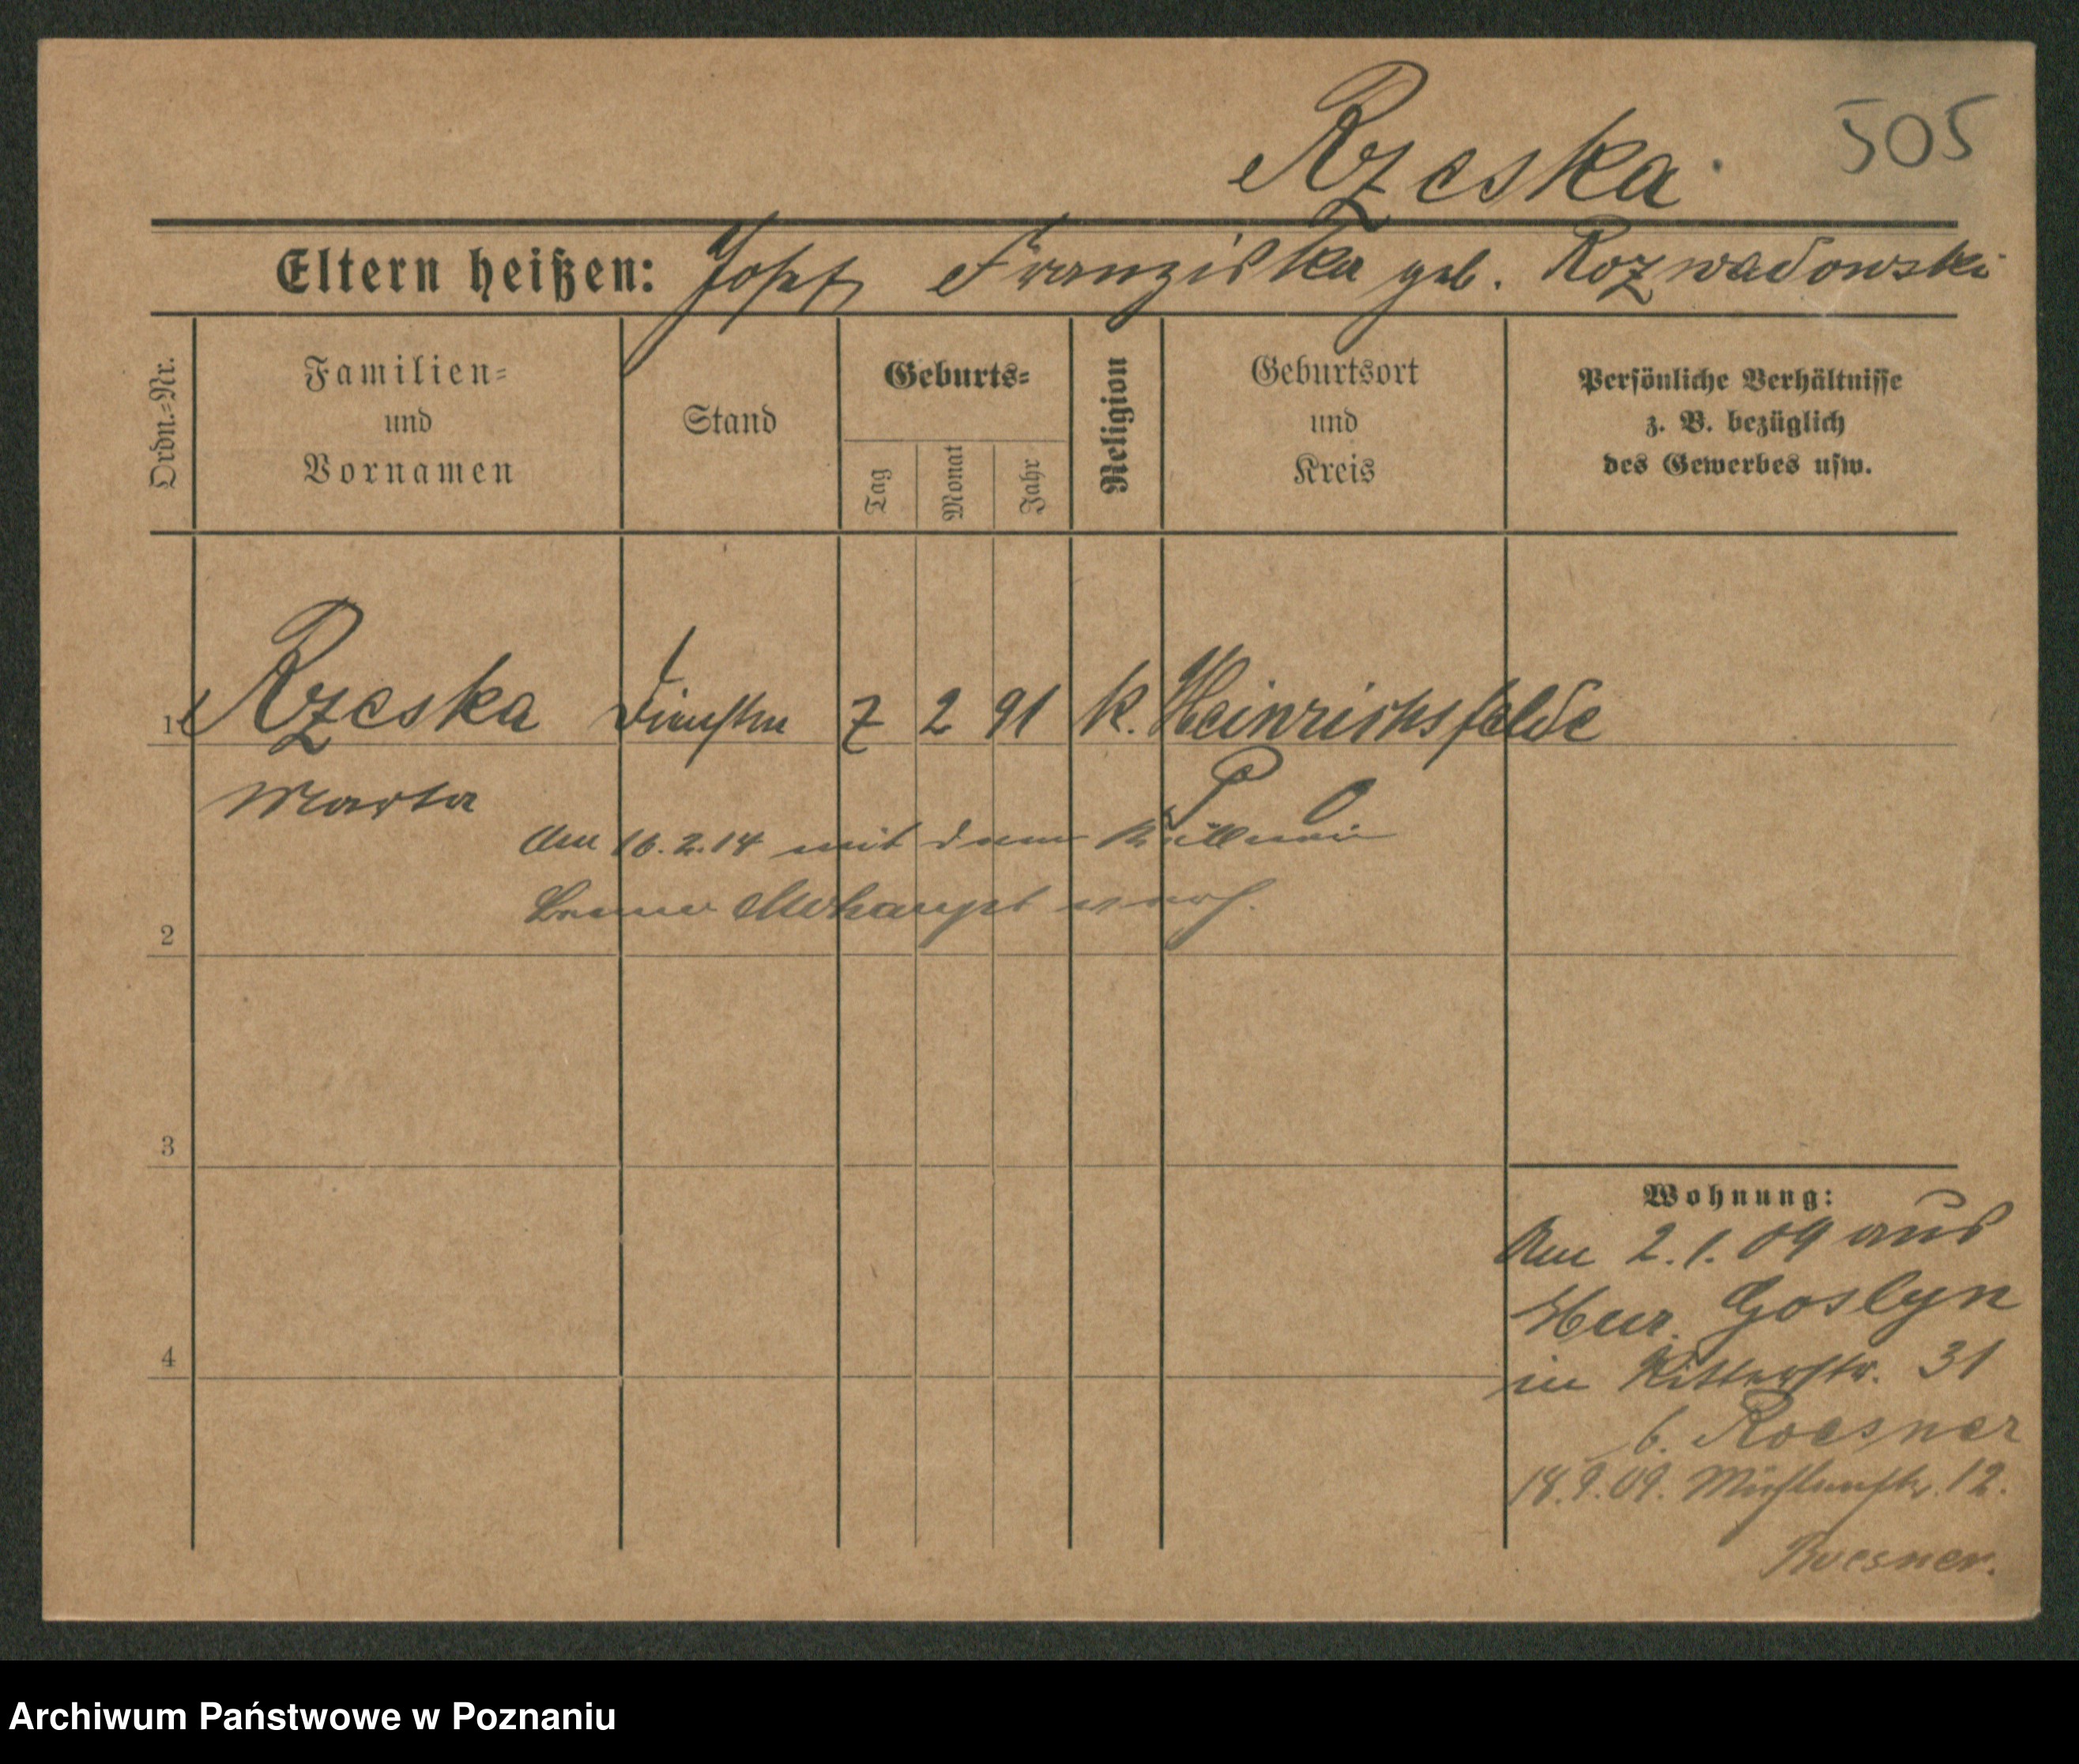 Rzeska
505
Eltern heißen: Josef Franziska geb. Rozwadowski
Ordn.=Nr.
Familien=
und
Vornamen
Stand
Geburts=
Tag
Monat
Jahr
Religion
Geburtsort
und
Kreis
Persönliche Verhältnisse
z. B. bezüglich
des Gewerbes usw.
1 Rzeska Dienstm 7 2 91 k. Heinrichsfelde
Marta
P. O
Am 16.2.14 mit dem
verh.
2
3
4
Wohnung:
Am 2.1.09 aus
Mur. Goslyn
in Ritterstr. 31
b. Roesner
18.9.09. Mühlenstr. 12.
Roesner.
Archiwum Państwowe w Poznaniu